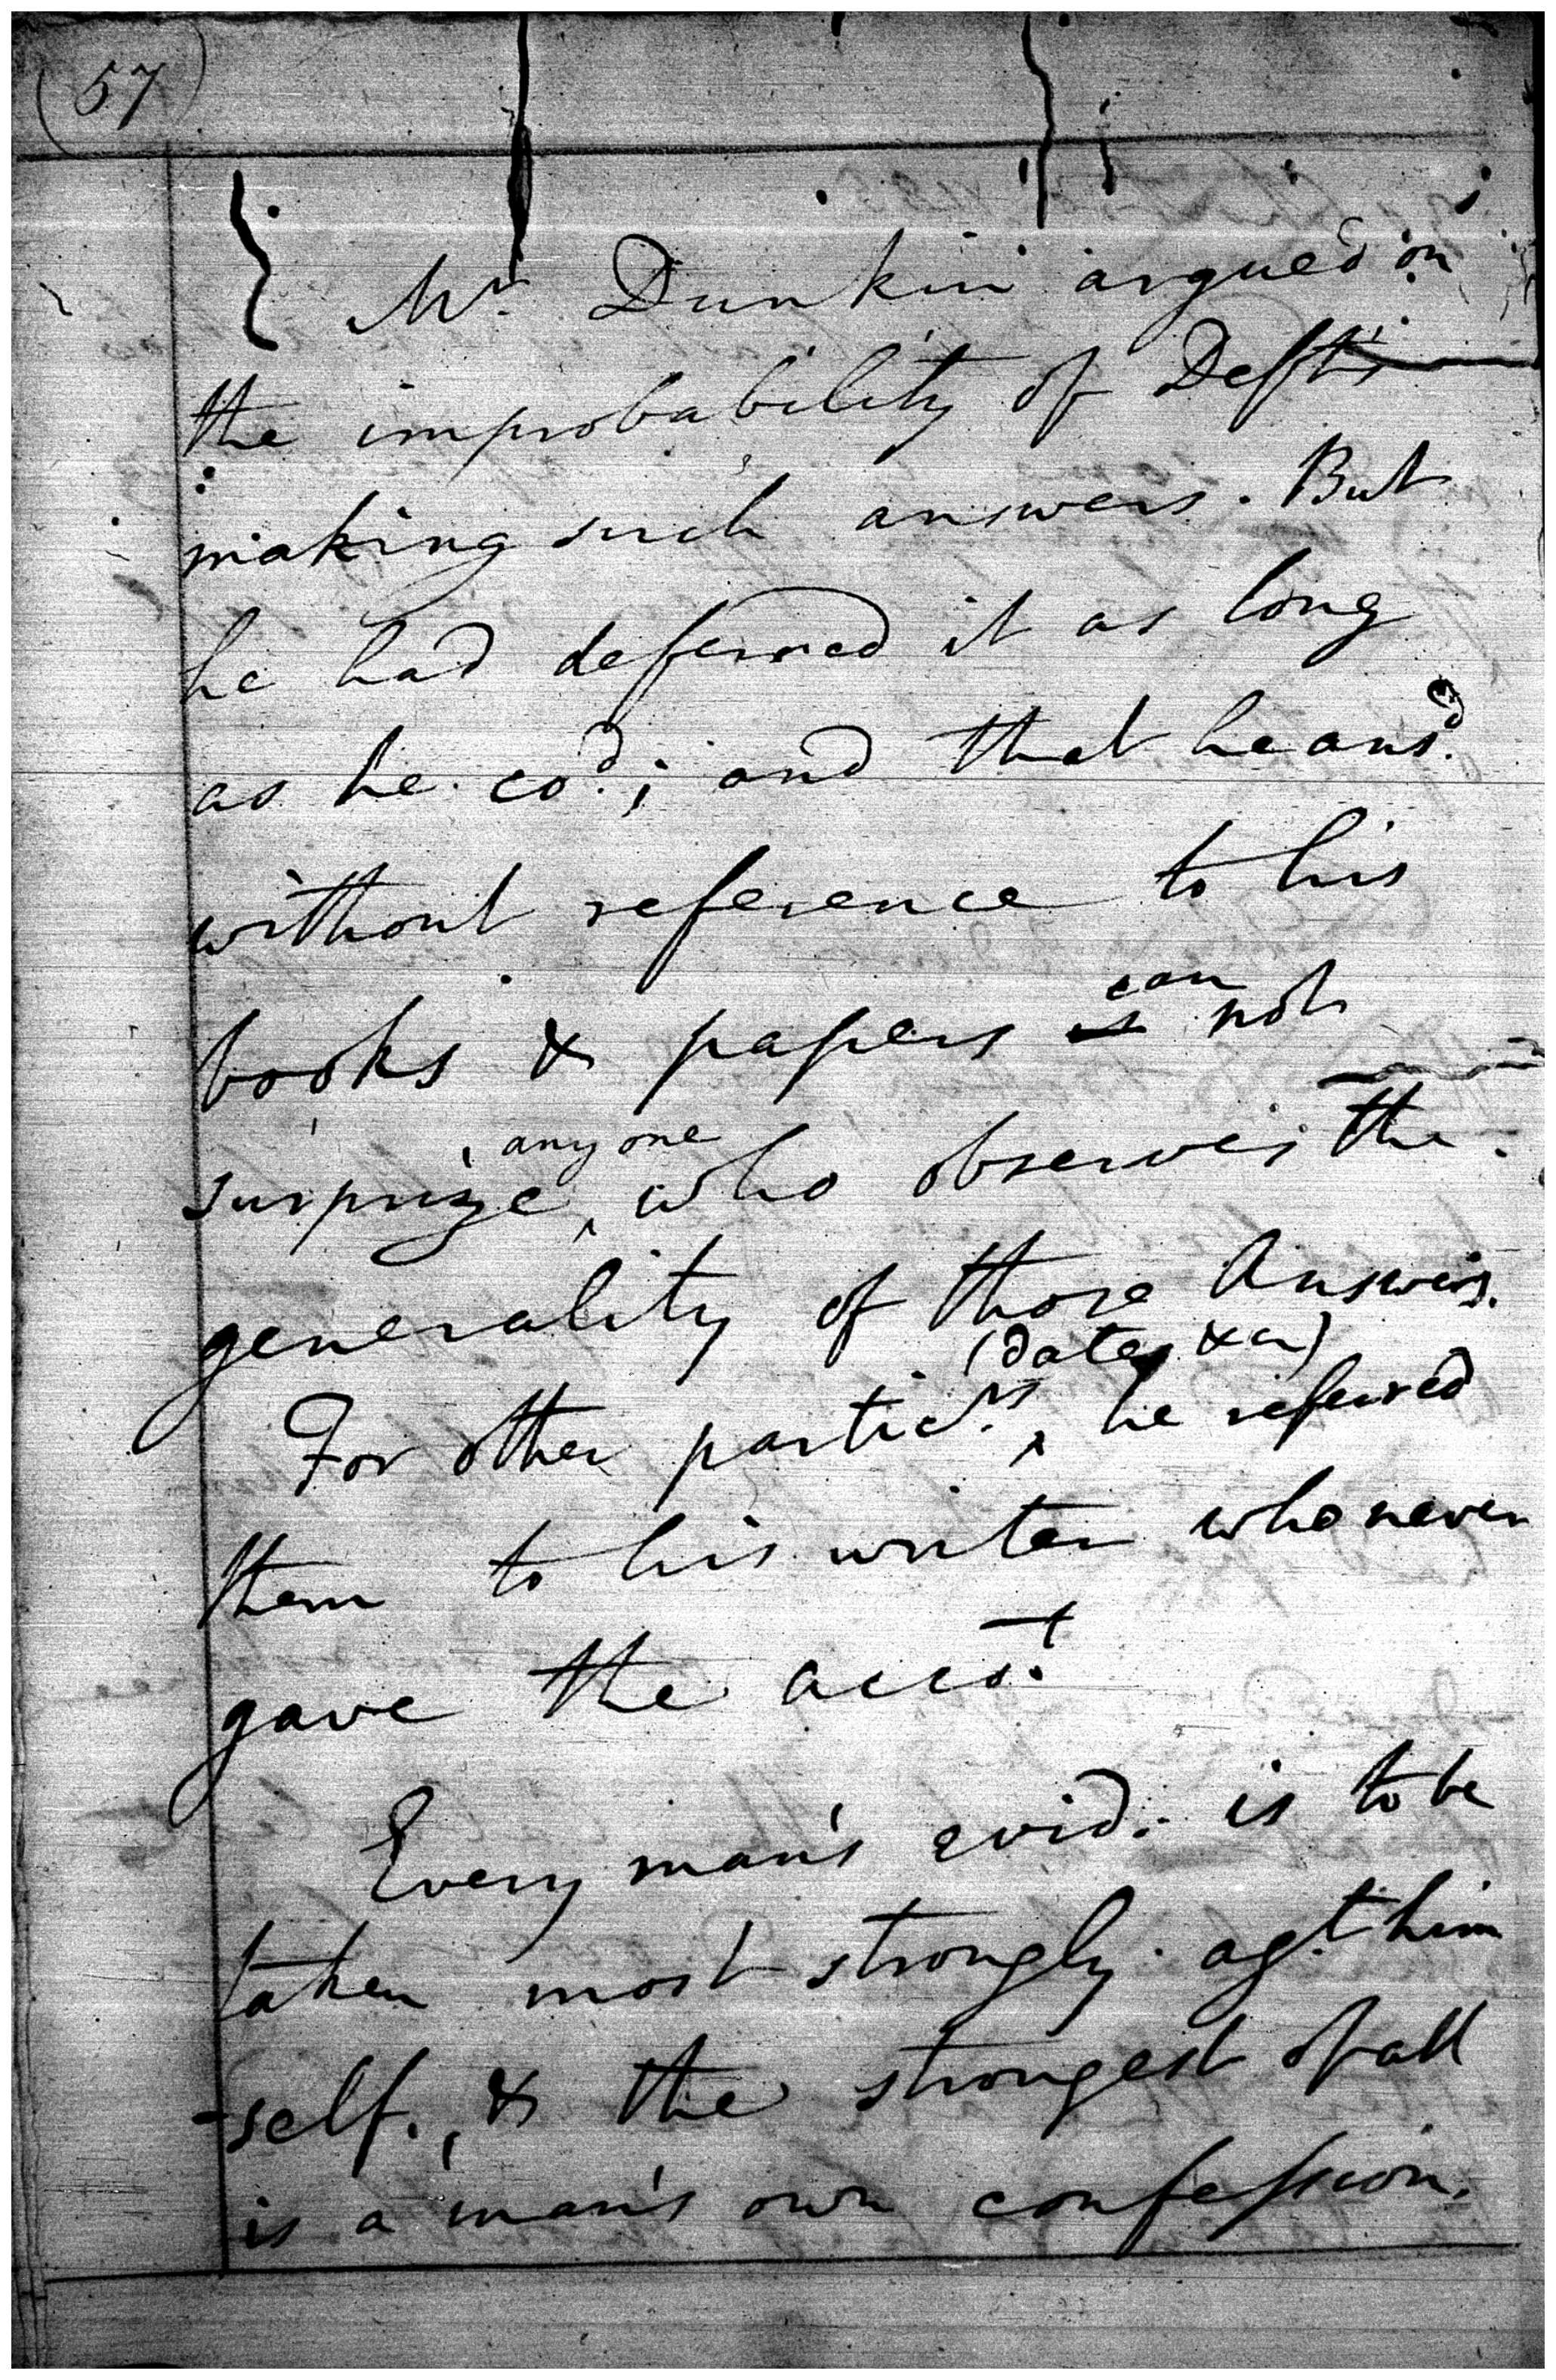 (57)
Mr. Dunkin argued on
the improbability of Deft's
making such answers. But
he had deferred it as long
as he cod.; and that he ansd.
without reference to his
can
books & papers is not
anyone
surprize, who observes the
generality of those Answers.
(dates &ca)
For other particrs., he referred
them to his writer who never
gave the accot.
Every man's evid. is to be
taken most strongly agt. him
-self., & the strongest of all
is a man's own confession.